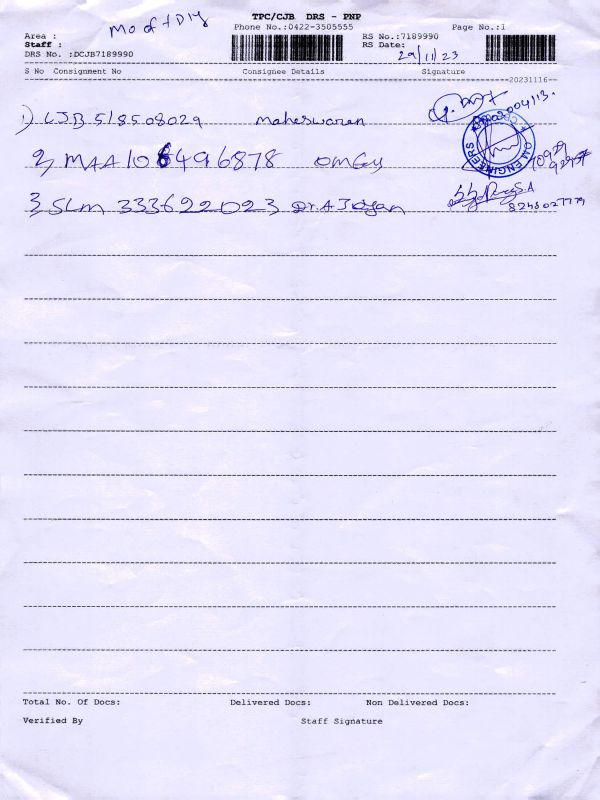 TPC/CJB DRS - PNP
Phone No.:0422-3505555
Page No.:1
Area :
Staff :
DRS No. :DCJB7189990
RS No.:7189990
RS Date:
29/11/23
S No Consignment No Consignee Details Signature
20231116
1) CJB 518508029 maheswaren
2) MAA 106496878 OMGy
ENGINEERS
3) SLM 333622023 Dr.A
S.A
8248027779
Total No. Of Docs: Delivered Docs: Non Delivered Docs:
Verified By Staff Signature